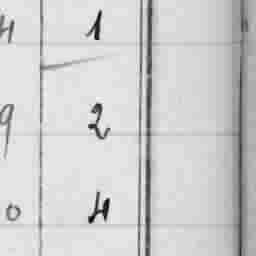 4 1
9 2
0 4